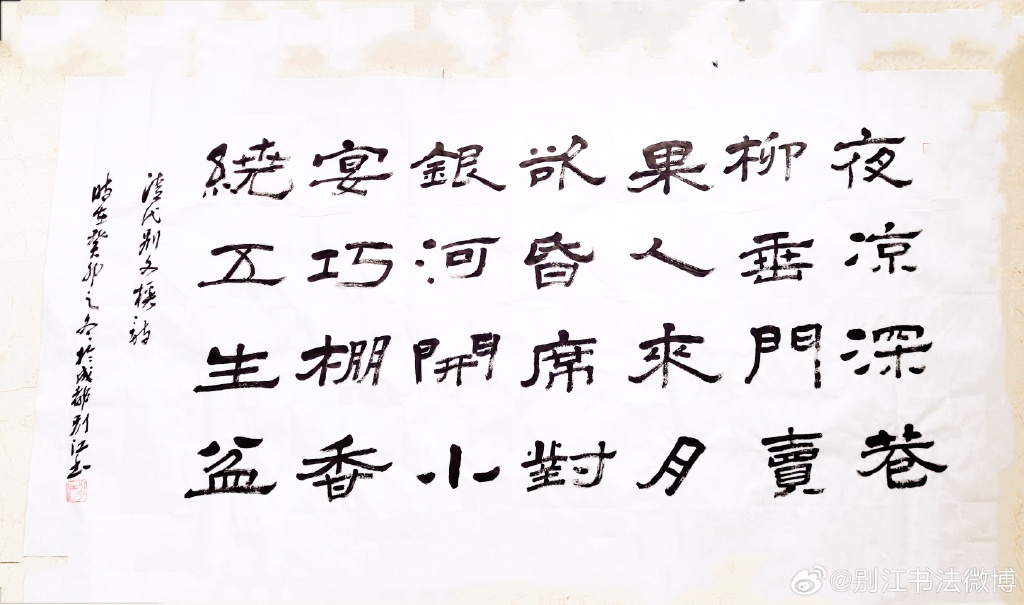 夜凉深巷
柳垂門賣
果人來月
欲昏席對
銀河開小
宴巧棚香
繞五生盆
清代别文榤詩
時在癸卯之冬於成都别江书
@别江书法微博